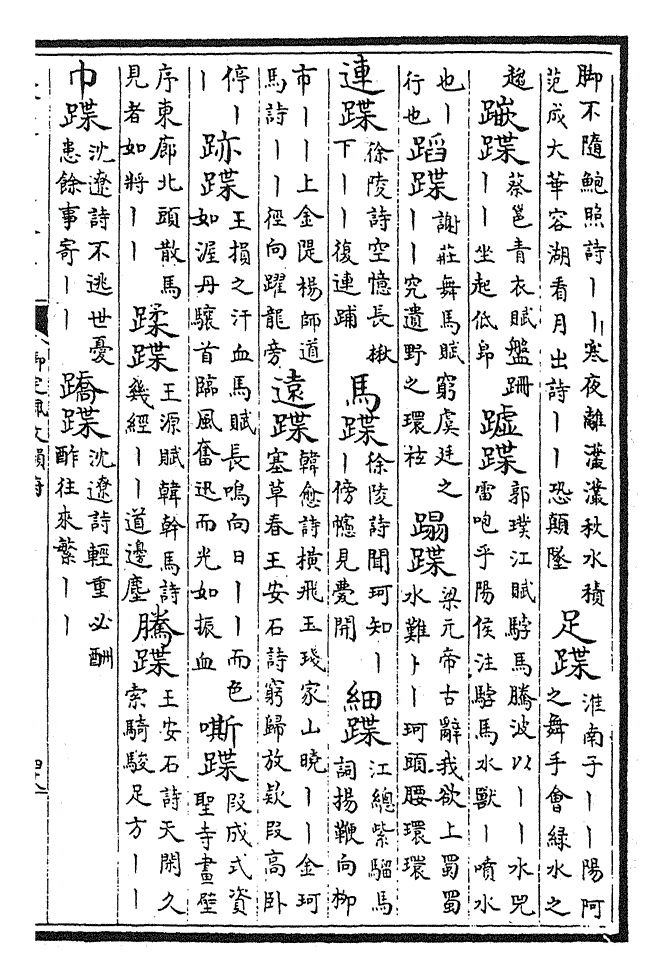 脚不隨鮑照詩丨丨寒夜離灇灇秋水積
范成大華容湖看月出詩丨丨恐顛墜
足蹀
淮南子丨丨陽阿
之舞手會緑水之
趨
蹴蹀
蔡邕青衣賦盤跚
丨丨坐起低昻
噓蹀
郭璞江賦駮馬騰波以丨丨水兕
雷咆乎陽侯注駮馬水獸丨噴水
也丨
行也
蹈蹀
謝莊舞馬賦窮虞廷之
丨丨究遺野之環袨
蹋蹀
梁元帝古辭我欲上蜀蜀
水難丨丨珂頭腰環環
連蹀
徐陵詩空憶長楸
下丨丨復連踊
馬蹀
徐陵詩聞珂知丨
丨傍幰見甍開
細蹀
江總紫騮馬
詞揚鞭向柳
市丨丨上金隄楊師道
馬詩丨丨徑向躍龍旁
遠蹀
韓愈詩橫飛玉琖家山曉丨丨金珂
塞草春王安石詩窮歸放欵段高卧
停丨
丨
跡蹀
王損之汗血馬賦長鳴向日丨丨而色
如渥丹驤首臨風奮迅而光如振血
嘶蹀
段成式資
聖寺畫壁
序東廊北頭散馬
見者如將丨丨
蹂蹀
王源賦韓幹馬詩
幾經丨丨道邊塵
騰蹀
王安石詩天閑久
索騎駿足方丨丨
巾蹀
沈遼詩不逃世憂
患餘事寄丨丨
蹻蹀
沈遼詩輕重必酬
酢往來繁丨丨